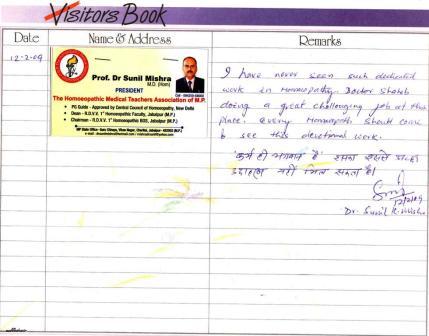 Visitors Book
Date Name & Address Remarks
12-2-09
Prof. Dr Sunil Mishra
M.D. (Hom)
PRESIDENT
The Homoeopathic Medical Teachers Association of M.P.
PG Guide - Approved by Central Council of Homoeopathy, New Delhi
Dean - R.D.V.V. 1st Homoeopathic Faculty, Jabalpur (M.P.)
Chairman - R.D.V.V. 1st Homoeopathic BOS, Jabalpur (M.P.)
I have never seen such dedicated
work in Homoeopathy. Doctor Shaheb
doing a great challenging job at this
place. every Homoeopath should come
& see this devotional work.
'कर्म ही भगवान है' इसका इससे अच्छा
उदाहरण नहीं मिल सकता है।
12/2/09
Dr. Sunil K. Mishra